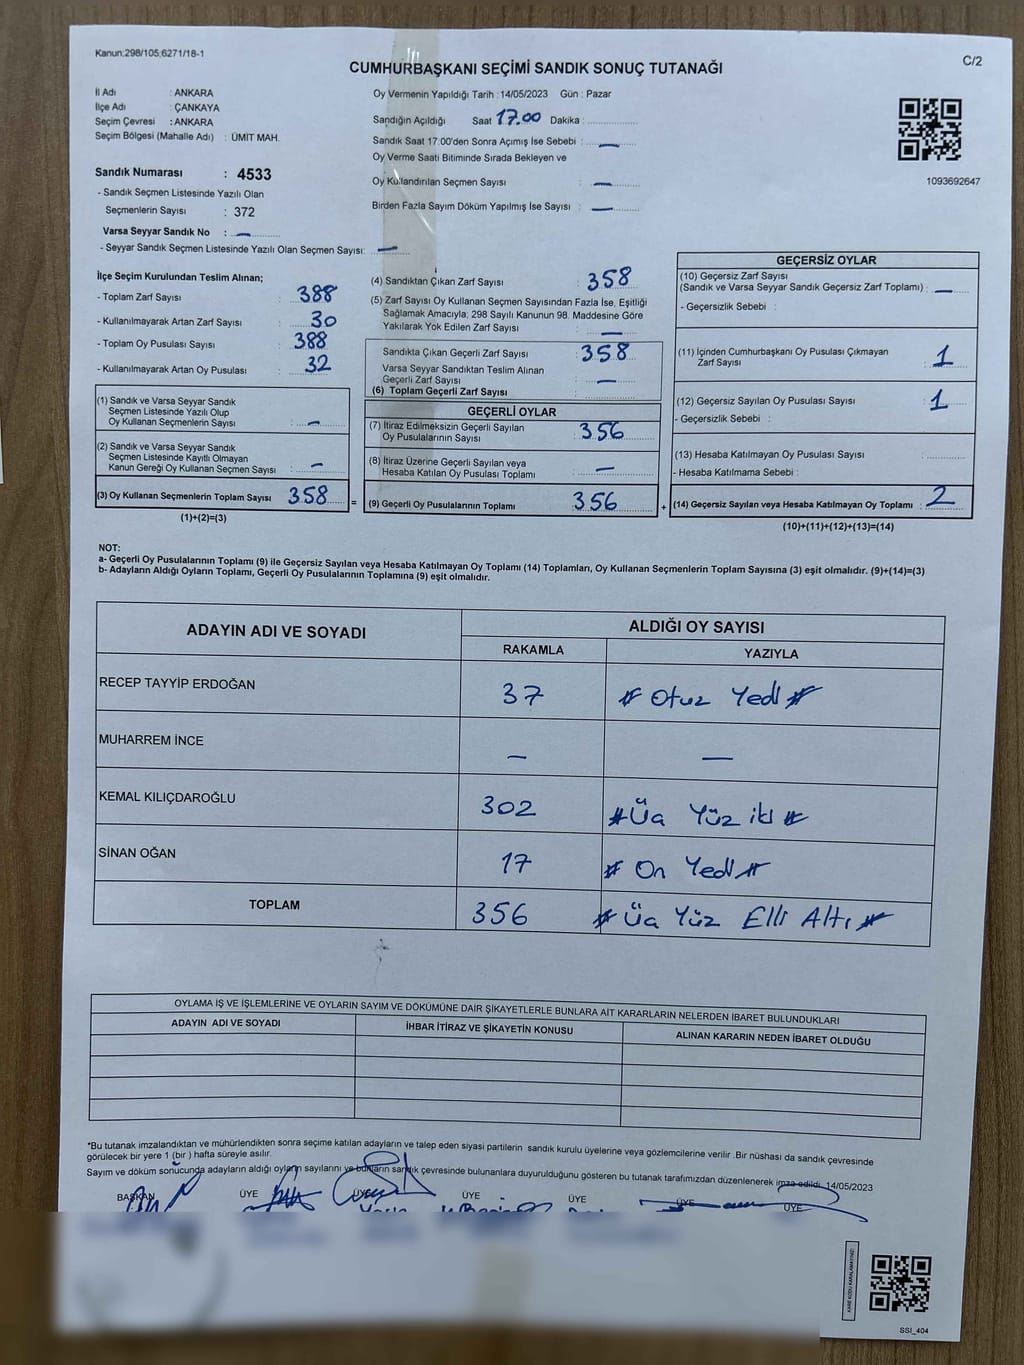 Kanun:298/105,6271/18-1
C/2
CUMHURBAŞKANI SEÇİMİ SANDIK SONUÇ TUTANAĞI
İl Adı : ANKARA
İlçe Adı : ÇANKAYA
Seçim Çevresi : ANKARA
Seçim Bölgesi (Mahalle Adı) : ÜMİT MAH.
Sandık Numarası : 4533
- Sandık Seçmen Listesinde Yazılı Olan
Seçmenlerin Sayısı : 372
Varsa Seyyar Sandık No : —
- Seyyar Sandık Seçmen Listesinde Yazılı Olan Seçmen Sayısı: —
Oy Vermenin Yapıldığı Tarih : 14/05/2023 Gün : Pazar
Sandığın Açıldığı Saat 17.00 Dakika :
Sandık Saat 17:00'den Sonra Açımış İse Sebebi : —
Oy Verme Saati Bitiminde Sırada Bekleyen ve
Oy Kullandırılan Seçmen Sayısı : —
Birden Fazla Sayım Döküm Yapılmış İse Sayısı : —
1093692647
İlçe Seçim Kurulundan Teslim Alınan;
- Toplam Zarf Sayısı : 388
- Kullanılmayarak Artan Zarf Sayısı : 30
- Toplam Oy Pusulası Sayısı : 388
- Kullanılmayarak Artan Oy Pusulası : 32
(1) Sandık ve Varsa Seyyar Sandık
Seçmen Listesinde Yazılı Olup
Oy Kullanan Seçmenlerin Sayısı : —
(2) Sandık ve Varsa Seyyar Sandık
Seçmen Listesinde Kayıtlı Olmayan
Kanun Gereği Oy Kullanan Seçmen Sayısı : —
(3) Oy Kullanan Seçmenlerin Toplam Sayısı 358
(1)+(2)=(3)
(4) Sandıktan Çıkan Zarf Sayısı : 358
(5) Zarf Sayısı Oy Kullanan Seçmen Sayısından Fazla İse, Eşitliği
Sağlamak Amacıyla; 298 Sayılı Kanunun 98. Maddesine Göre
Yakılarak Yok Edilen Zarf Sayısı : —
Sandıkta Çıkan Geçerli Zarf Sayısı : 358
Varsa Seyyar Sandıktan Teslim Alınan
Geçerli Zarf Sayısı : —
(6) Toplam Geçerli Zarf Sayısı :
GEÇERLİ OYLAR
(7) İtiraz Edilmeksizin Geçerli Sayılan
Oy Pusulalarının Sayısı : 356
(8) İtiraz Üzerine Geçerli Sayılan veya
Hesaba Katılan Oy Pusulası Toplamı : —
=
(9) Geçerli Oy Pusulalarının Toplamı : 356
+
GEÇERSİZ OYLAR
(10) Geçersiz Zarf Sayısı
(Sandık ve Varsa Seyyar Sandık Geçersiz Zarf Toplamı) : —
- Geçersizlik Sebebi :
(11) İçinden Cumhurbaşkanı Oy Pusulası Çıkmayan
Zarf Sayısı : 1
(12) Geçersiz Sayılan Oy Pusulası Sayısı : 1
- Geçersizlik Sebebi :
(13) Hesaba Katılmayan Oy Pusulası Sayısı :
- Hesaba Katılmama Sebebi :
(14) Geçersiz Sayılan veya Hesaba Katılmayan Oy Toplamı : 2
(10)+(11)+(12)+(13)=(14)
NOT:
a- Geçerli Oy Pusulalarının Toplamı (9) ile Geçersiz Sayılan veya Hesaba Katılmayan Oy Toplamı (14) Toplamları, Oy Kullanan Seçmenlerin Toplam Sayısına (3) eşit olmalıdır. (9)+(14)=(3)
b- Adayların Aldığı Oyların Toplamı, Geçerli Oy Pusulalarının Toplamına (9) eşit olmalıdır.
ADAYIN ADI VE SOYADI ALDIĞI OY SAYISI
RAKAMLA YAZIYLA
RECEP TAYYİP ERDOĞAN 37 # Otuz Yedi #
MUHARREM İNCE — —
KEMAL KILIÇDAROĞLU 302 # Üç Yüz iki #
SİNAN OĞAN 17 # On Yedi #
TOPLAM 356 # Üç Yüz Elli Altı #
OYLAMA İŞ VE İŞLEMLERİNE VE OYLARIN SAYIM VE DÖKÜMÜNE DAİR ŞİKAYETLERLE BUNLARA AİT KARARLARIN NELERDEN İBARET BULUNDUKLARI
ADAYIN ADI VE SOYADI İHBAR İTİRAZ VE ŞİKAYETİN KONUSU ALINAN KARARIN NEDEN İBARET OLDUĞU
*Bu tutanak imzalandıktan ve mühürlendikten sonra seçime katılan adayların ve talep eden siyasi partilerin sandık kurulu üyelerine veya gözlemcilerine verilir .Bir nüshası da sandık çevresinde
görülecek bir yere 1 (bir ) hafta süreyle asılır.
Sayım ve döküm sonucunda adayların aldığı oyların sayılarını ve bunların sandık çevresinde bulunanlara duyurulduğunu gösteren bu tutanak tarafımızdan düzenlenerek imza edildi. 14/05/2023
BAŞKAN ÜYE ÜYE ÜYE ÜYE ÜYE ÜYE
KARE KODU KARALAMAYINIZ!
SSI_404